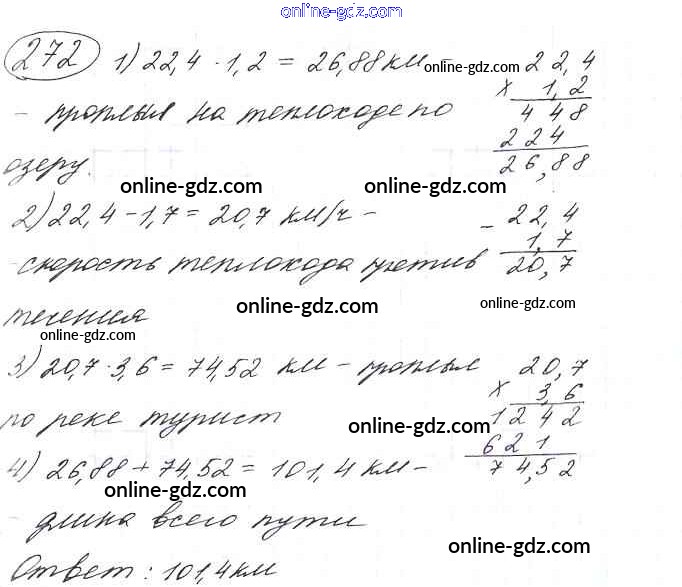 online-gdz.com
272 1) 22,4 · 1,2 = 26,88 км – online-gdz.com 22,4
× 1,2
– проплыл на теплоходе по 448
224
озеру. 26,88
online-gdz.com online-gdz.com
2) 22,4 – 1,7 = 20,7 км/ч – – 22,4
1,7
– скорость теплохода против 20,7
online-gdz.com online-gdz.com
течения
online-gdz.com
3) 20,7 · 3,6 = 74,52 км – проплыл 20,7
× 3,6
по реке турист online-gdz.com 1242
621
4) 26,88 + 74,52 = 101,4 км – 74,52
online-gdz.com
длина всего пути
online-gdz.com
Ответ: 101,4 км